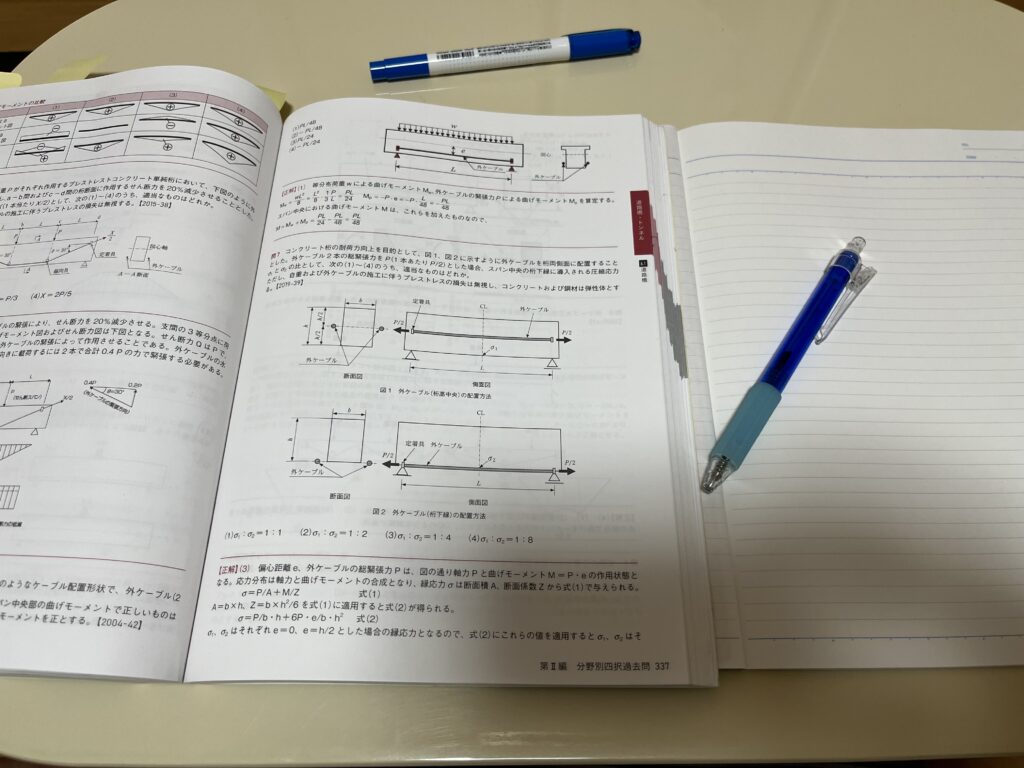 モーメントの比較
(1)
(2)
(3)
(4)
重Pがそれぞれ作用するプレストレストコンクリート単純桁において、下図のように外
し、a-b間およびc-d間の桁断面に作用するせん断力を20%減少させることとした。
(1本当たりX/2)として、次の(1)~(4)のうち、適当なものはどれか。
ルの施工に伴うプレストレスの損失は無視する。【2015-38】
図心軸
定着具
外ケーブル
偏向具
A-A断面
=P/3 (4)X=2P/5
ルの緊張により、せん断力を20%減少させる。支間の3等分点に荷
げモーメント図およびせん断力図は下図となる。せん断力QはPで、
外ケーブルの緊張によって作用させることである。外ケーブルの水
向きに載荷するには2本で合計0.4Pの力で緊張する必要がある。
0.4P
0.2P
θ=30°
(せん断スパン)
(外ケーブルの緊張方向)
X/2
のようなケーブル配置形状で、外ケーブル(2
パン中央部の曲げモーメントで正しいものは
モーメントを正とする。【2004-42】
(1)PL/48
(2)-PL/48
(3)PL/24
(4)-PL/24
w
e
図心
外ケーブル
L
【正解】(1) 等分布荷重wによる曲げモーメントMw、外ケーブルの緊張力Pによる曲げモーメントMpを算定する。
スパン中央における曲げモーメントMは、これらを加えたものなので、
M=Mw+Mp=PL/24-PL/48=PL/48
問7 コンクリート桁の耐荷力向上を目的として、図1、図2に示すように外ケーブルを桁両側面に配置すること
とした。外ケーブル2本の総緊張力をP(1本あたりP/2)とした場合、スパン中央の桁下縁に導入される圧縮応力
の比として、次の(1)~(4)のうち、適当なものはどれか。
ただし、自重および外ケーブルの施工に伴うプレストレスの損失は無視し、コンクリートおよび鋼材は弾性体とす
る。【2019-39】
b
定着具
CL
外ケーブル
h
h/2
h/2
P/2
P/2
σ₁
外ケーブル
L
断面図
側面図
図1 外ケーブル(桁高中央)の配置方法
b
CL
h
定着具 外ケーブル
σ₂
P/2
P/2
外ケーブル
L
断面図
側面図
図2 外ケーブル(桁下縁)の配置方法
(1)σ₁:σ₂=1:1 (2)σ₁:σ₂=1:2 (3)σ₁:σ₂=1:4 (4)σ₁:σ₂=1:8
【正解】(3) 偏心距離e、外ケーブルの総緊張力Pは、図の通り軸力Pと曲げモーメントM=P・eの作用状態と
なる。応力分布は軸力と曲げモーメントの合成となり、縁応力σは断面積A、断面係数Zから式(1)で与えられる。
σ=P/A+M/Z 式(1)
A=b×h、Z=b×h²/6を式(1)に適用すると式(2)が得られる。
σ=P/b・h+6P・e/b・h² 式(2)
σ₁、σ₂はそれぞれe=0、e=h/2とした場合の縁応力となるので、式(2)にこれらの値を適用するとσ₁、σ₂はそ
第Ⅱ編 分野別四択過去問 337
道路橋・トンネル
道路橋